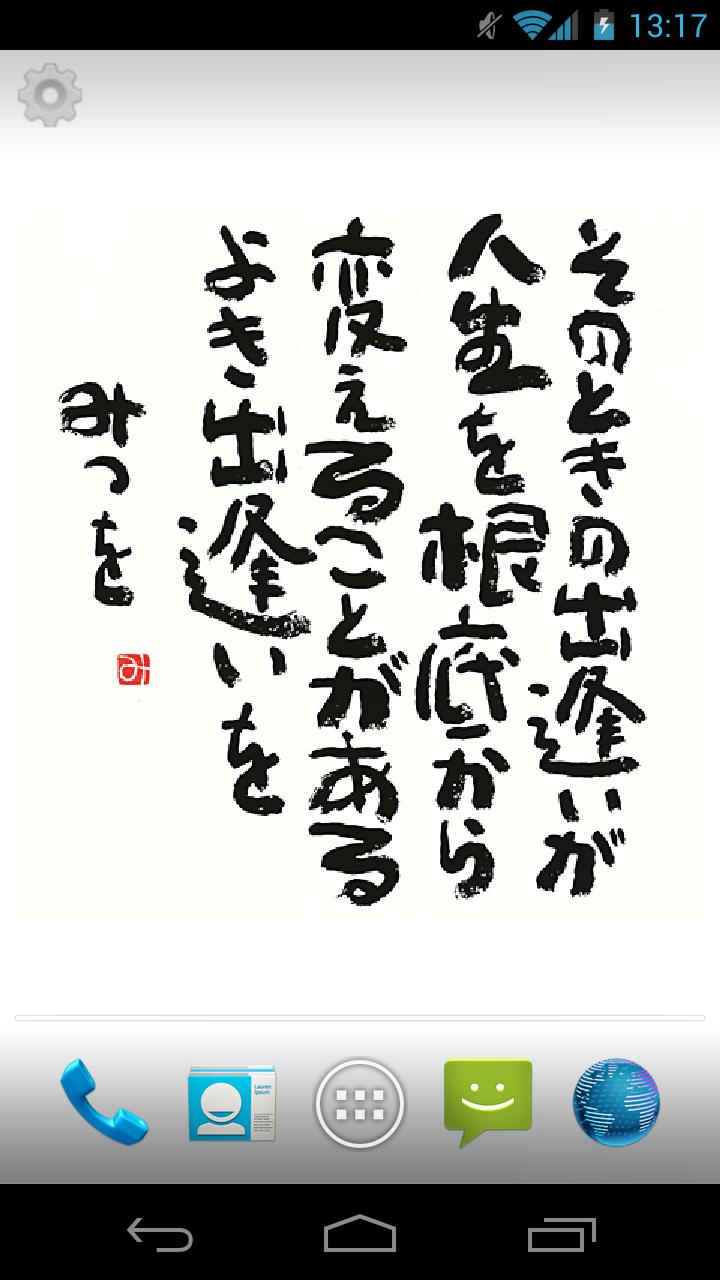 13:17
そのときの出逢いが
人生を根底から
変えることがある
よき出逢いを
みつを
み
Lauren
Ipsum